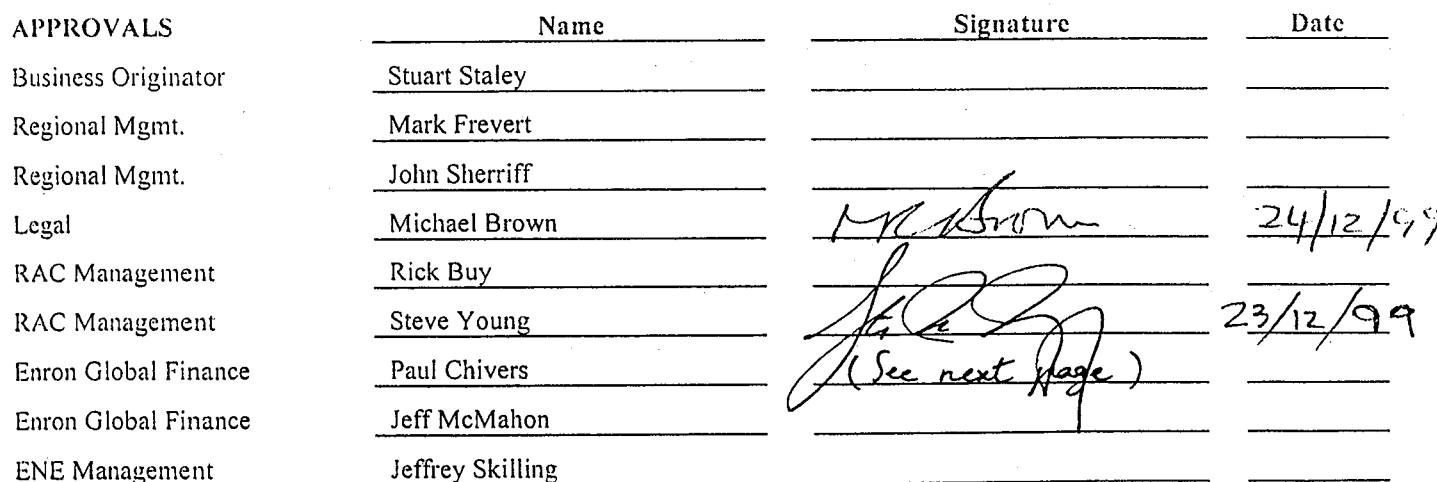 APPROVALS Name Signature Date
Business Originator Stuart Staley
Regional Mgmt. Mark Frevert
Regional Mgmt. John Sherriff
Legal Michael Brown MR Brown 24/12/99
RAC Management Rick Buy
RAC Management Steve Young 23/12/99
Enron Global Finance Paul Chivers (See next page)
Enron Global Finance Jeff McMahon
ENE Management Jeffrey Skilling